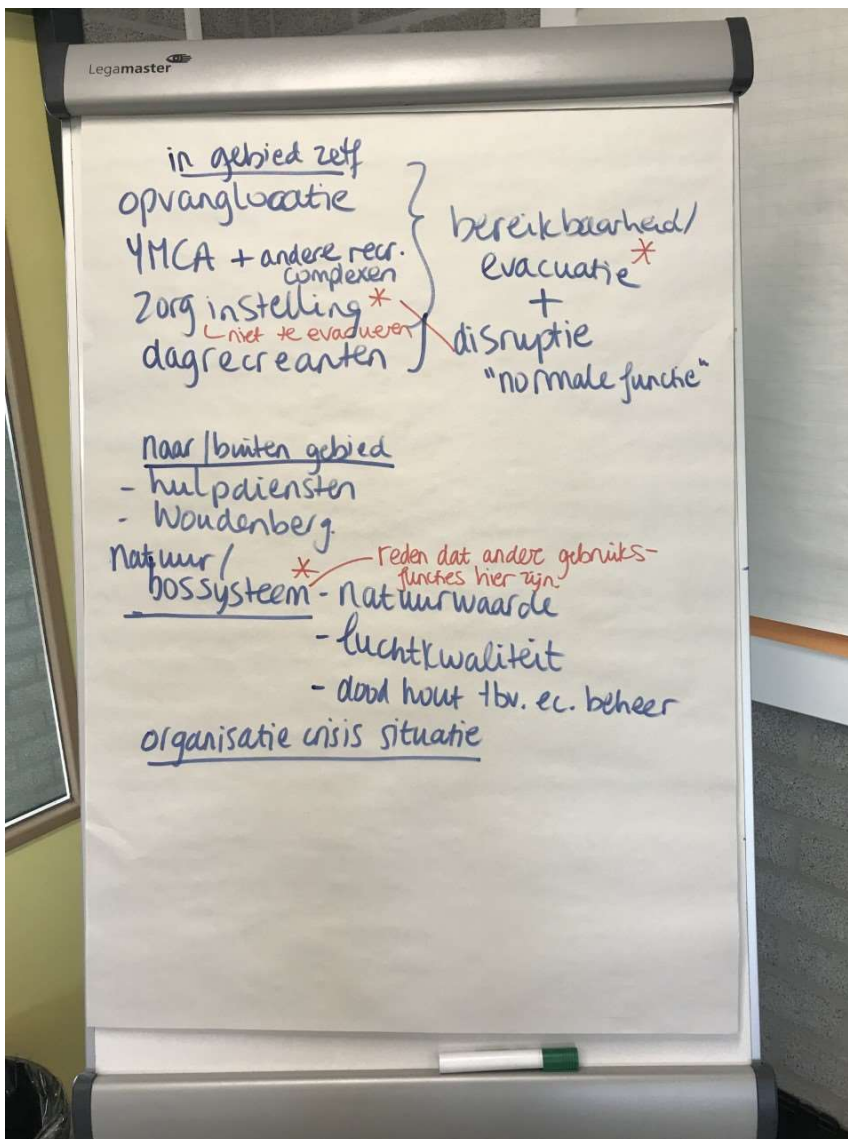 Legamaster
in gebied zelf
opvanglocatie
YMCA + andere recr.
complexen
zorg instelling *
niet te evacueren
dagrecreanten
bereikbaarheid/
evacuatie *
+
disruptie
"normale functie"
naar/buiten gebied
- hulpdiensten
- Woudenberg.
natuur/
bossysteem *
reden dat andere gebruiks-
functies hier zijn.
- natuurwaarde
- luchtkwaliteit
- dood hout tbv. ec. beheer
organisatie crisis situatie